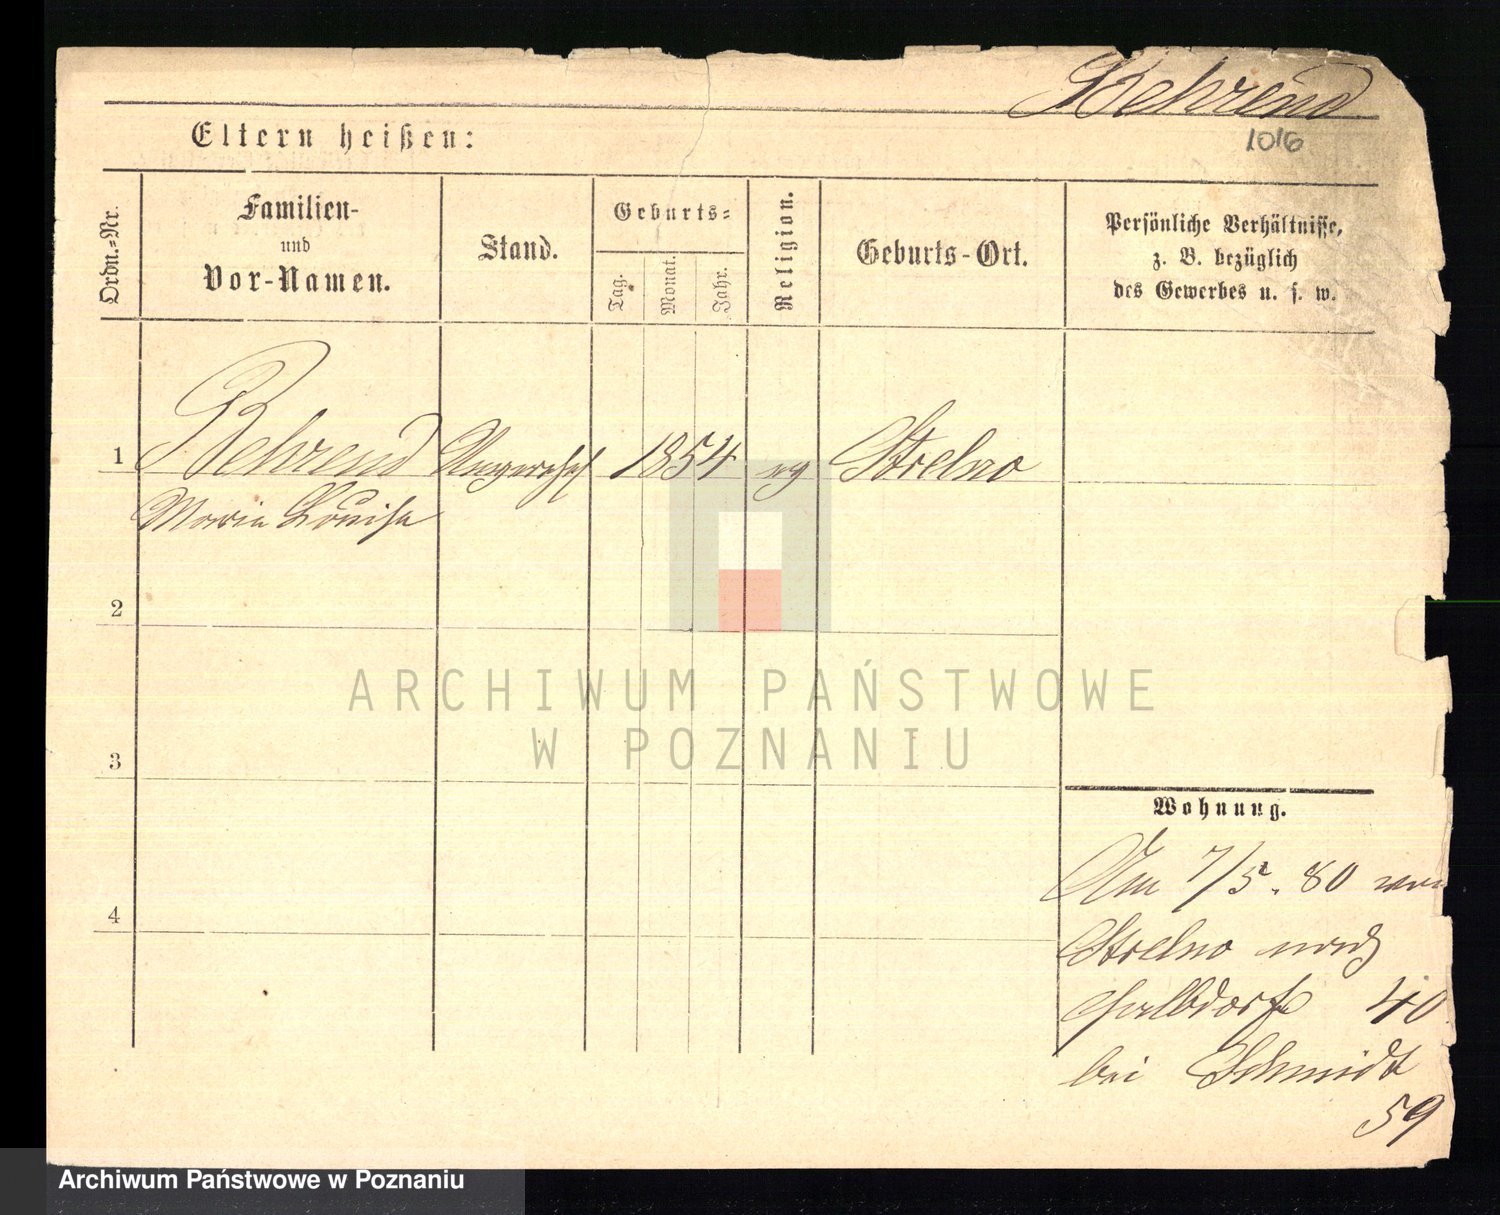 Behrend
1016
Eltern heißen:
Ordn.=Nr.
Familien-
und
Vor-Namen.
Stand.
Geburts=
Tag.
Monat.
Jahr.
Religion.
Geburts-Ort.
Persönliche Verhältnisse,
z. B. bezüglich
des Gewerbes u. s. w.
1 Behrend 1854 eg Strelno
Marie Louise
2
3
4
Wohnung.
Am 7/5. 80 von
Strelno nach
Halbdorf 40
bei Schmidt
59
ARCHIWUM PAŃSTWOWE
W POZNANIU
Archiwum Państwowe w Poznaniu